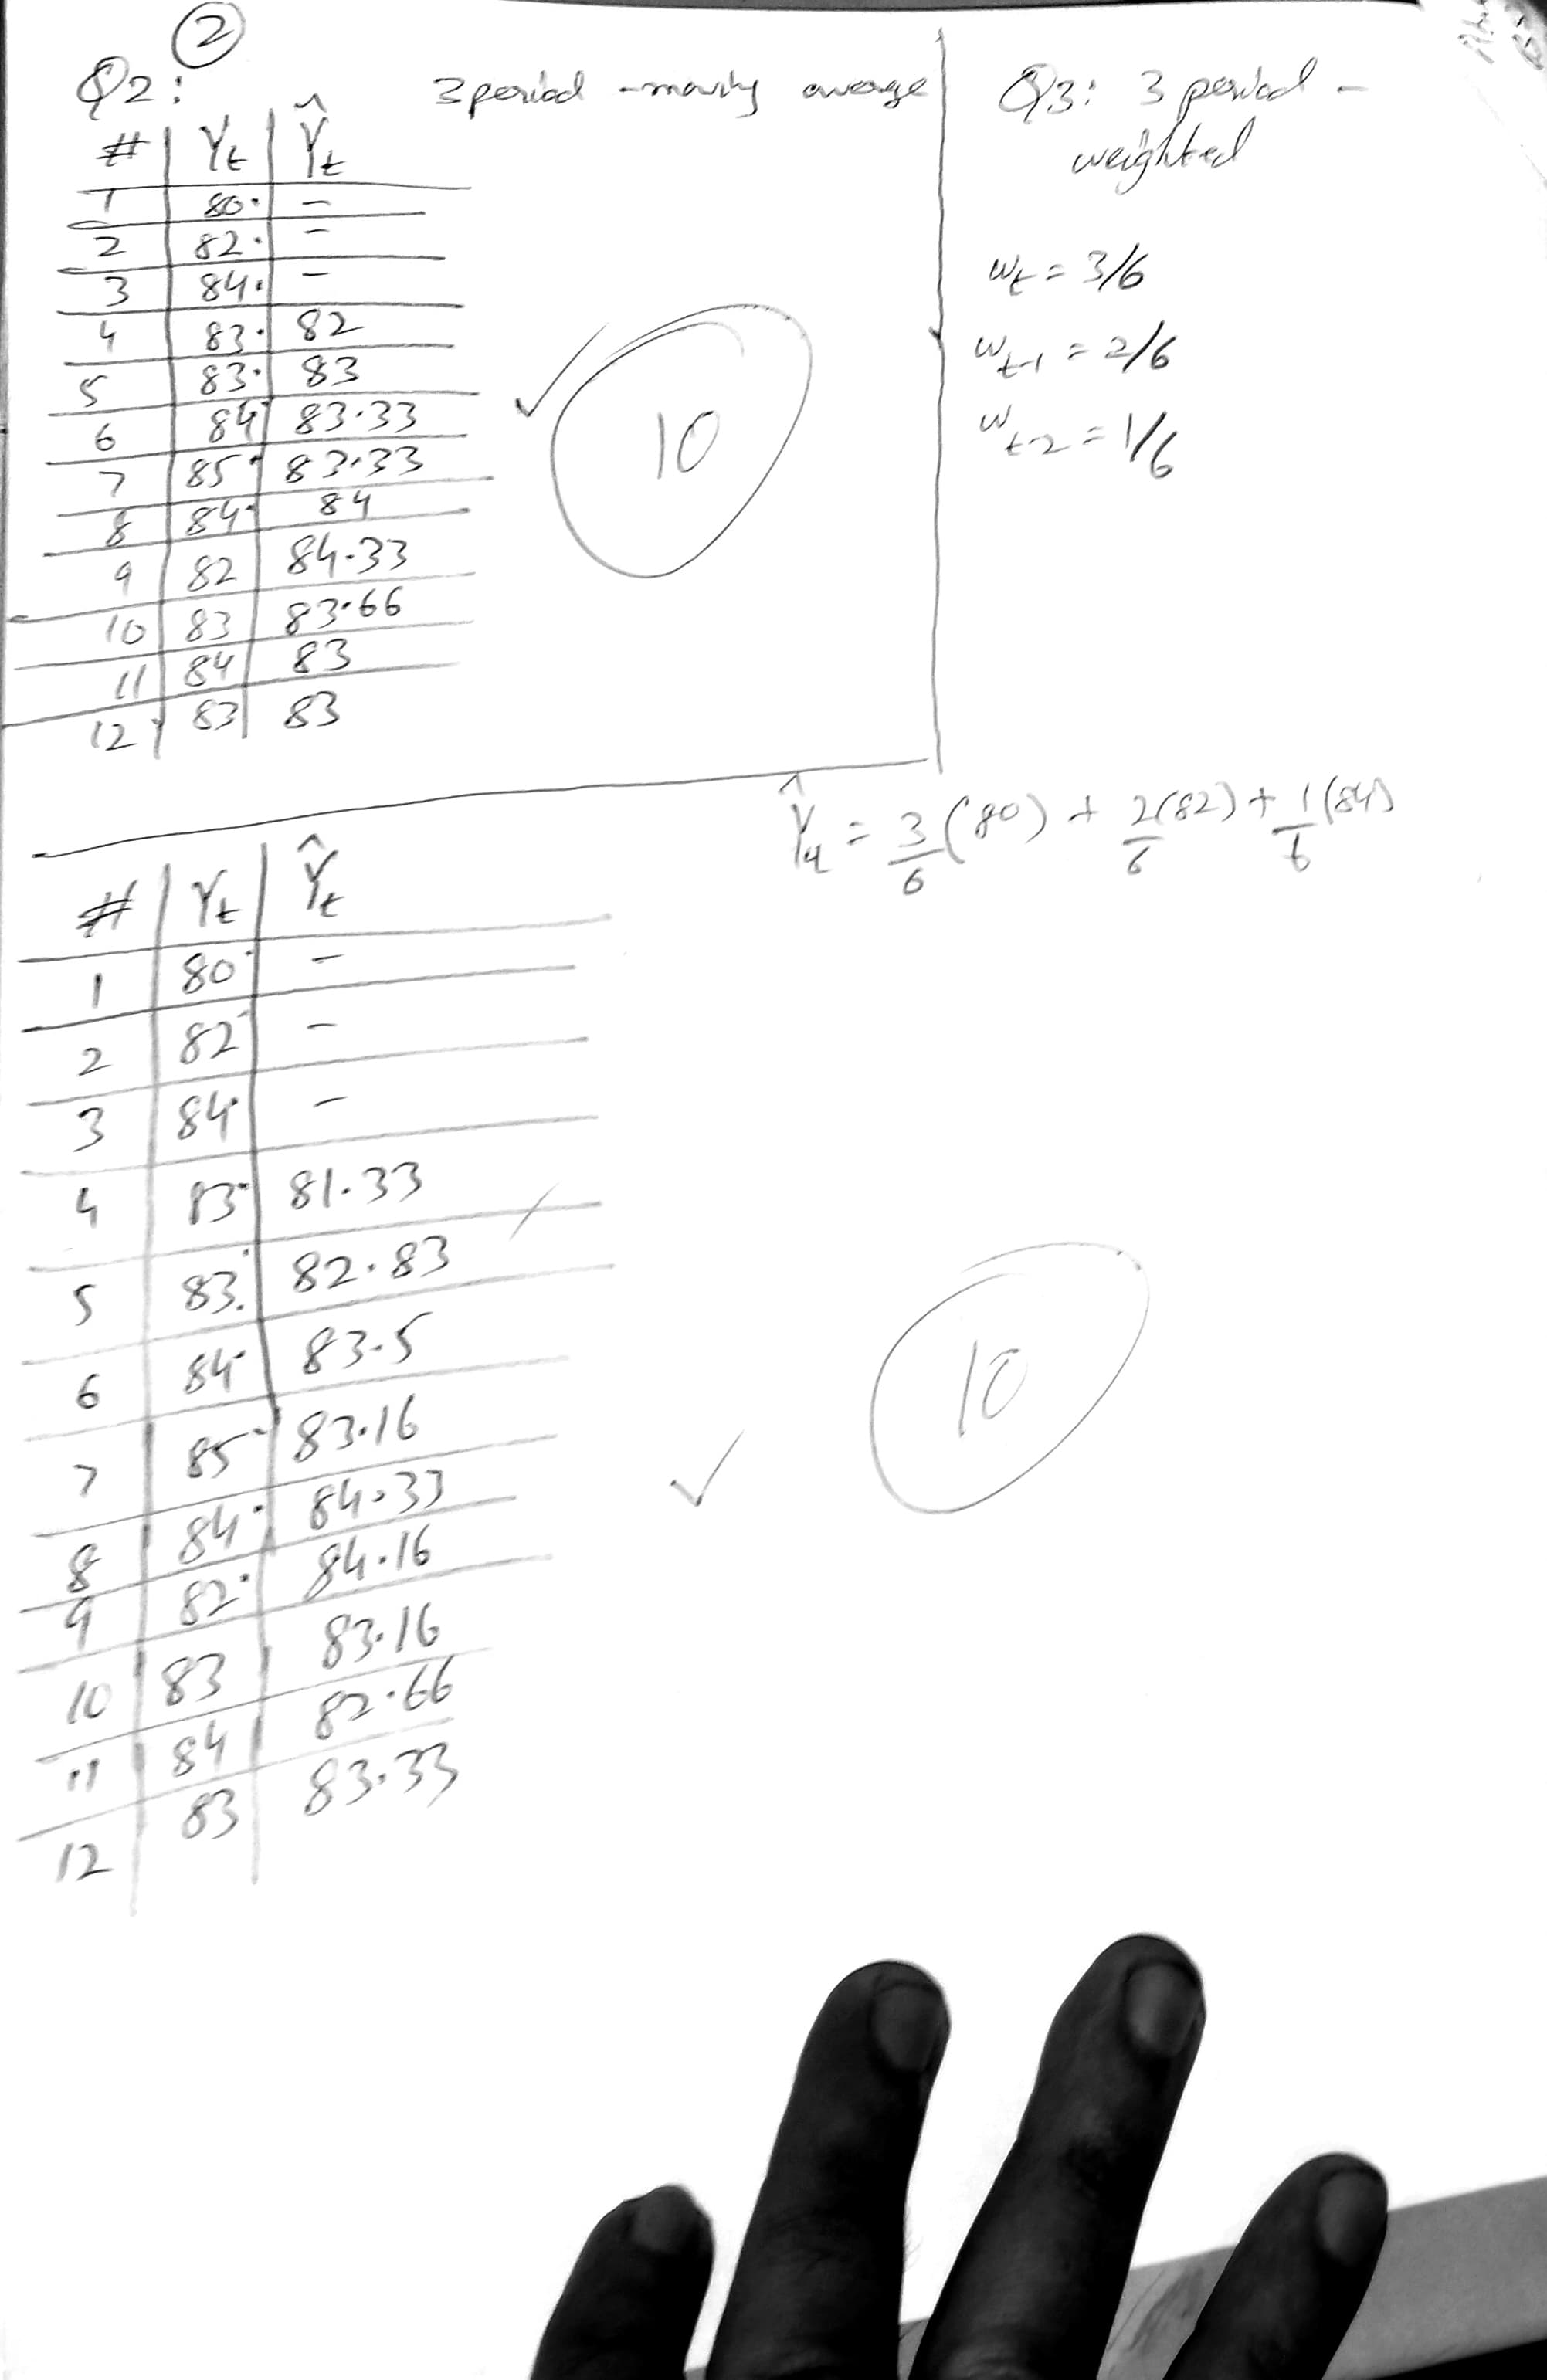 2
Q2: 3 period -moving average
# Yt Ŷt
1 80. -
2 82. -
3 84. -
4 83. 82
5 83. 83
6 84 83.33
7 85 83.33
8 84 84
9 82 84.33
10 83 83.66
11 84 83
12 83 83
10
Q3: 3 period -
weighted
wt = 3/6
wt-1 = 2/6
wt-2 = 1/6
Ŷ4 = 3/6 (80) + 2/6 (82) + 1/6 (84)
# Yt Ŷt
1 80 -
2 82 -
3 84 -
4 83 81.33
5 83. 82.83
6 84 83.5
7 85 83.16
8 84 84.33
9 82 84.16
10 83 83.16
11 84 82.66
12 83 83.33
10